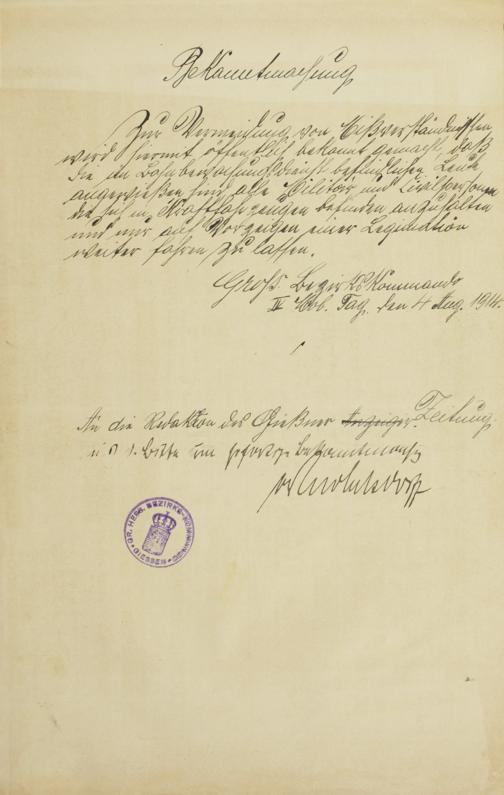 Bekanntmachung
Zur Vermeidung von Mißverständnissen
wird hiermit öffentlich bekannt gemacht, daß
die im Bahnbewachungsdienst befindlichen Leute
angewießen sind alle Militär und Civilpersonen
die sich in Kraftfahrzeugen befinden anzuhalten
und nur auf Vorzeigen einer Legimation
weiter fahren zu lassen.
Groß. Bezirks Kommando
IV Mob. Tag, den 4 Aug. 1914.
An die Redaktion des Gießner Anzeiger. Zeitung
bitte um Bekanntmachg
GR. HESS. BEZIRKS-KOMMANDO
GIESSEN